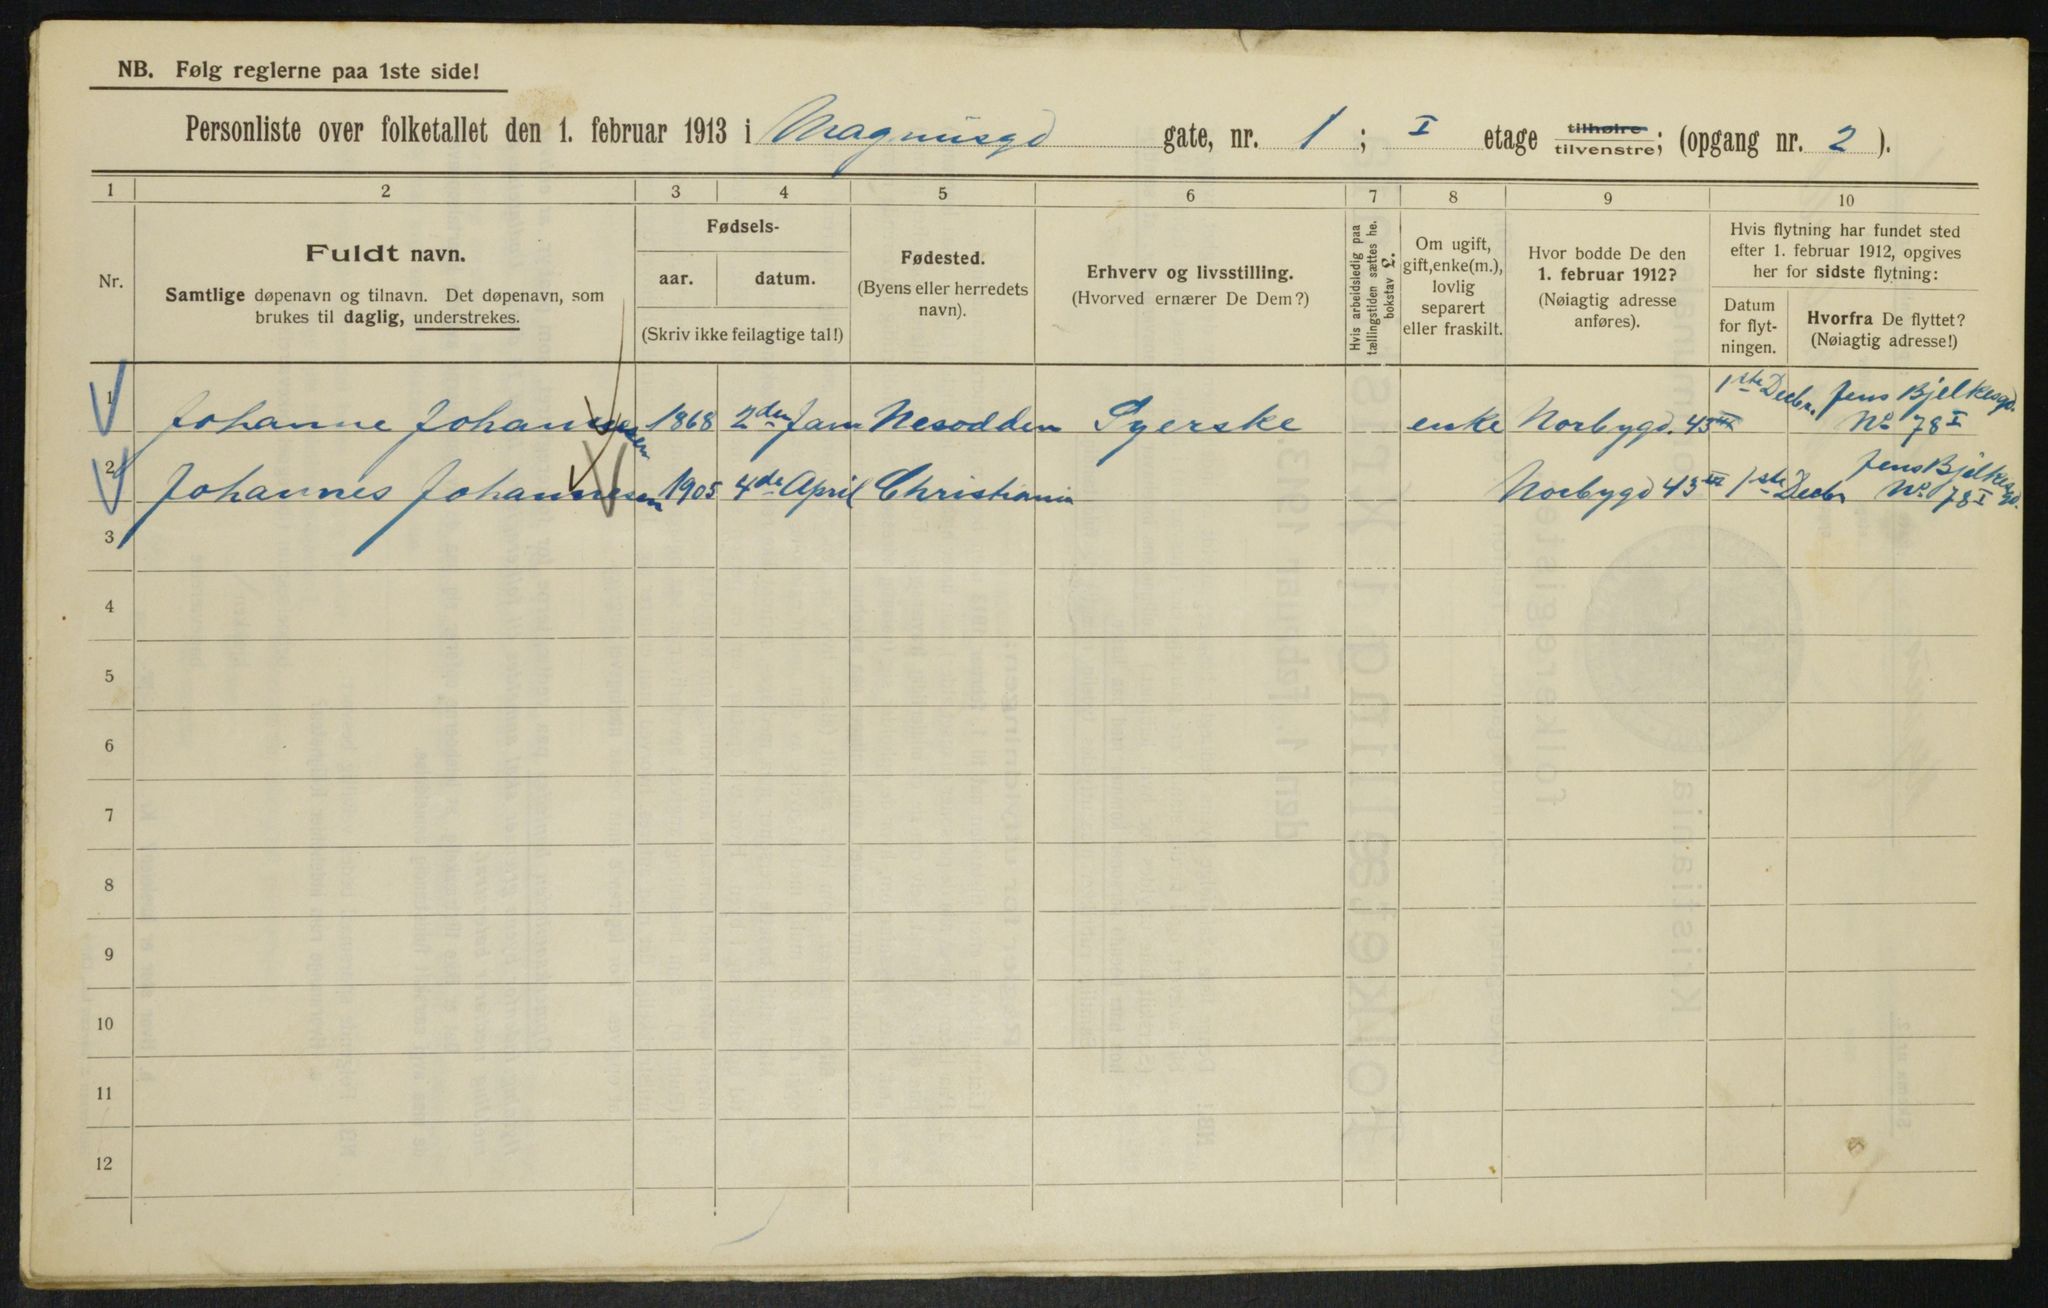 NB. Følg reglerne paa 1ste side!
Personliste over folketallet den 1. februar 1913 i Magnusgd gate, nr. 1 ; I etage tilhøire tilvenstre; (opgang nr. 2 ).
1 2 3 4 5 6 7 8 9 10
Nr.
Fuldt navn.
Samtlige døpenavn og tilnavn. Det døpenavn, som
brukes til daglig, understrekes.
Fødsels-
aar. datum.
(Skriv ikke feilagtige tal!)
Fødested.
(Byens eller herredets
navn).
Erhverv og livsstilling.
(Hvorved ernærer De Dem?)
Hvis arbeidsledig paa
tællingstiden sættes he.
bokstav L.
Om ugift,
gift, enke(m.),
lovlig
separert
eller fraskilt.
Hvor bodde De den
1. februar 1912?
(Nøiagtig adresse
anføres).
Hvis flytning har fundet sted
efter 1. februar 1912, opgives
her for sidste flytning:
Datum
for flyt-
ningen.
Hvorfra De flyttet?
(Nøiagtig adresse!)
1 Johanne Johannesen 1868 2den Jan Nesodden Syerske enke Norbygd. 43 III 1ste Decbr. Jens Bjelkesgd. No 78 I
2 Johannes Johannesen 1905 4de April Christiania Norbygd 43 III 1ste Decbr Jens Bjelkesgd. No 78 I
3
4
5
6
7
8
9
10
11
12